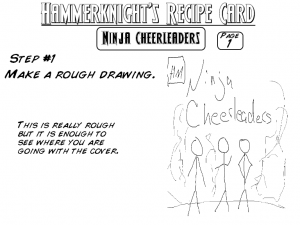 HAMMERKNIGHT'S RECIPE CARD
NINJA CHEERLEADERS
PAGE
1
STEP #1
MAKE A ROUGH DRAWING.
THIS IS REALLY ROUGH
BUT IT IS ENOUGH TO
SEE WHERE YOU ARE
GOING WITH THE COVER.
HM
Ninja
Cheerleaders